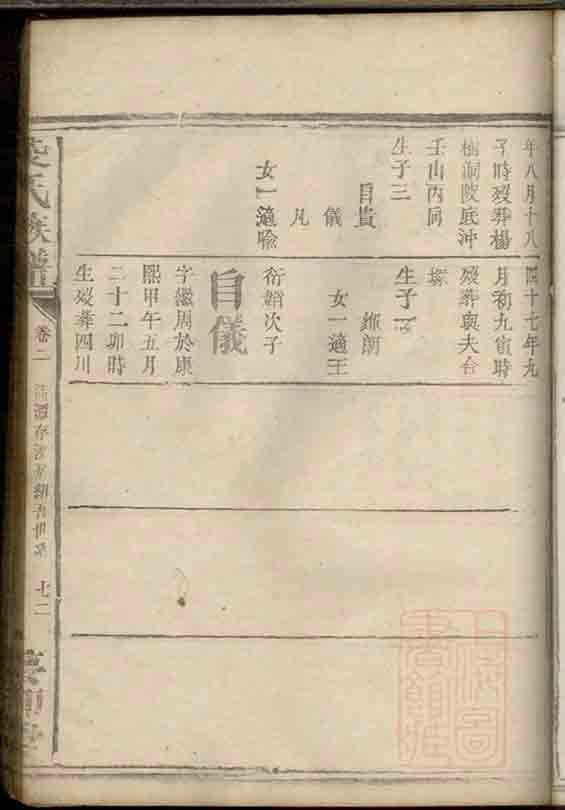 年八月十八
子時歿葬楊
樹洞陂底沖
壬山丙向
生子三
自貴
儀
凡
女一適喻
四十七年九
月初九寅時
歿葬與夫合
塚
生子一
維朗
女一適王
衍韜次子
自儀
字繼周於康
熙甲午五月
二十二卯時
生歿葬四川
氏族譜
卷二
七二
上海圖
書館藏